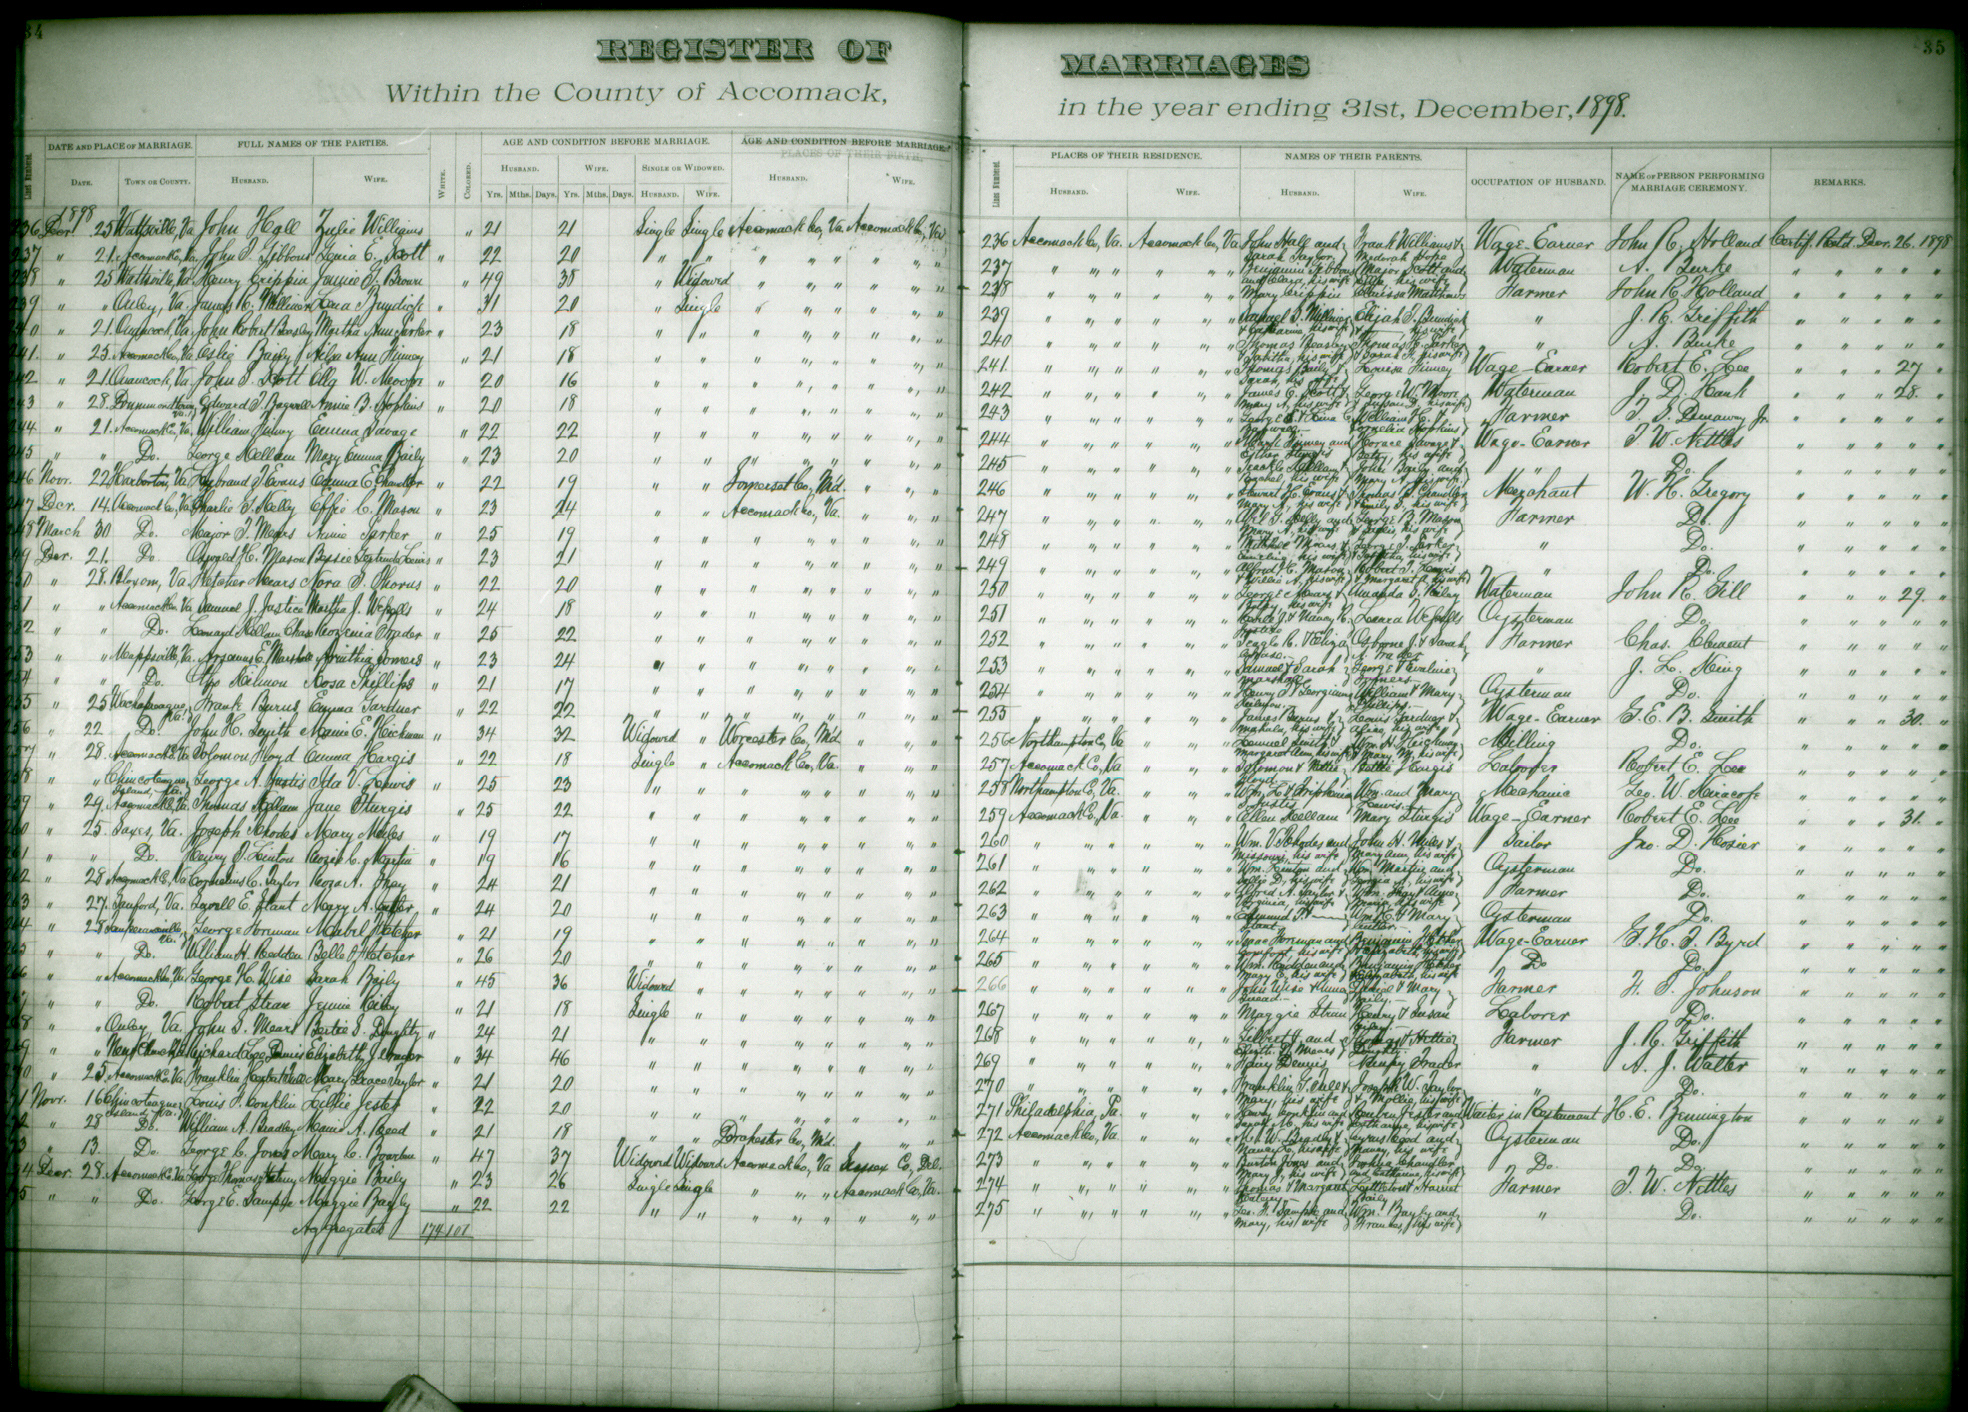 34
REGISTER OF
Within the County of Accomack,
DATE AND PLACE OF MARRIAGE. FULL NAMES OF THE PARTIES. AGE AND CONDITION BEFORE MARRIAGE. AGE AND CONDITION BEFORE MARRIAGE.
PLACES OF THEIR BIRTH.
Line Numbers. DATE. TOWN OR COUNTY. HUSBAND. WIFE. WHITE. COLORED. HUSBAND. WIFE. SINGLE OR WIDOWED. HUSBAND. WIFE.
Yrs. Mths. Days. Yrs. Mths. Days. HUSBAND. WIFE.
1898
236 Decr 25 Wattsville, Va John Hall Zulie Williams " 21 21 Single Single Accomack Co, Va Accomack Co, Va
237 " 21. Accomack Co, Va John T. Gibbons Genia E. Scott " 22 20 " " " " " "
238 " 25 Wattsville, Va Henry Crippin Jennie T. Brown " 49 38 " Widowed " " " "
239 " " Onley, Va. James H. Williams Lena Bundick " 31 20 " Single " " " "
240 " 21. Onancock, Va John Robert Beasley Martha Ann Parker " 23 18 " " " " " "
241. " 25. Accomack Co, Va Eslie Baily Ann Finney " 21 18 " " " " " "
242 " 21. Onancock, Va. John S. Scott Ella W. Moore " 20 16 " " " " " "
243 " 28. Edward T. Bagwell Annie B. Hopkins " 20 18 " " " " " "
244 " 21. Accomack Co, Va. William Finney Emma Savage " 22 22 " " " " " "
245 " " Do. George Kellam Mary Emma Baily " 23 20 " " " " " "
246 Novr. 22 Harborton, Va. T. Evans Emma E. Chandler " 22 19 " " Somerset Co, Md. " "
247 Decr. 14. Accomack Co, Va. Charlie T. Kelly Effie C. Mason " 23 24 " " Accomack Co, Va. " "
248 March 30 Do. Major T. Mears Annie Parker " 25 19 " " " " " "
249 Decr. 21. Do Oswald H. Mason Bessie Gertrude Lewis " 23 21 " " " " " "
250 " 28. Bloxom, Va Fletcher Mears Nora T. Thorns " 22 20 " " " " " "
251 " " Accomack Co. Va Samuel J. Justice Martha J. Wessells " 24 18 " " " " " "
252 " " Do. Leonard Kellam Chase Trader " 25 22 " " " " " "
253 " " Mappsville, Va. E. Marshall Somers " 23 24 " " " " " "
254 " " Do. Rosa Phillips " 21 17 " " " " " "
255 " 25 Wachapreague, Va. Frank Burus Emma Gardner " 22 22 " " " " " "
256 " 22 Do. John H. Smith Mamie E. Hickman " 34 32 Widowed " Worcester Co, Md. " "
257 " 28. Accomack Co. Va Solomon Floyd Emma Hargis " 22 18 Single " Accomack Co, Va. " "
258 " " Chincoteague Island, Va. George A. Justis Ida V. Lewis " 25 23 " " " " " "
259 " 29 Accomack Co, Va. Thomas Kellam Jane Sturgis " 25 22 " " " " " "
260 " 25. Saxes, Va. Joseph Rhodes Mary Miles " 19 17 " " " " " "
261 " " Do. Henry T. Linton Rozie C. Martin " 19 16 " " " " " "
262 " 28 Accomack Co, Va Cornelius C. Taylor Roza A. Shay " 24 21 " " " " " "
263 " 27. Sanford, Va. Lowell E. Stant Mary A. Cutler " 24 20 " " " " " "
264 " 28 Va. George Horman Mabel Fletcher " 21 19 " " " " " "
265 " " Do. William H. Redden Belle Fletcher " 26 20 " " " " " "
266 " " Accomack Co, Va. George H. Wise Sarah Baily " 45 36 Widowed " " " " "
267 " " Do. Robert Stran Jennie Riley " 21 18 Single " " " " "
268 " " Onley, Va. John S. Mears Bertie S. Doughty " 24 21 " " " " " "
269 " " New Church, Va Richard Lee Dennis Elizabeth J. Trader " 34 46 " " " " " "
270 " 25. Accomack Co. Va. Franklin Hall Mary Grace Taylor " 21 20 " " " " " "
271 Novr. 16 Chincoteague Island, Va. Louis T. Conklin Lillie Jester " 22 20 " " " " " "
272 " 28 Do. William A. Beadley Mamie A. Reed " 21 18 " " Dorchester Co, Md. " "
273 " 13. Do. George C. Jones Mary C. Bowden " 47 37 Widowed Widowed Accomack Co, Va Sussex Co, Del.
274 Decr. 28. Accomack Co. Va George Thomas Maggie Baily " 23 26 Single Single " " Accomack Co, Va.
275 " " Do. George E. Sample Maggie Bayly " 22 22 " " " " " "
Aggregates 174 101
35
MARRIAGES
in the year ending 31st, December, 1898.
PLACES OF THEIR RESIDENCE. NAMES OF THEIR PARENTS. OCCUPATION OF HUSBAND. NAME OF PERSON PERFORMING MARRIAGE CEREMONY. REMARKS.
Line Numbers. HUSBAND. WIFE. HUSBAND. WIFE.
236 Accomack Co, Va. Accomack Co, Va John Hall and Sarah Taylor Frank Williams & Wage-Earner John R. Holland Certif. Retd. Decr. 26. 1898
237 " " " " Benjamin Gibbons Major Scott and Waterman A. Burke " " " "
238 " " " " Mary Crippin Clarissa Matthews Farmer John R. Holland " " " "
239 " " " " Samuel T. Williams & Catharine, his wife Elijah T. Bundick " J. R. Griffith " " " "
240 " " " " Thomas Beasley & Tabitha, his wife Thomas H. Parker & Sarah, his wife " A. Burke " " " "
241. " " " " Thomas Baily & Sarah, his wife Louisa Finney Wage-Earner Robert E. Lee " " " 27 "
242 " " " " James E. Scott & Mary A. his wife George W. Moore Waterman J. D. Hank " " " 28. "
243 " " " " William H. & Cornelia Hopkins Farmer T. S. Dunaway Jr. " " " "
244 " " " " Finney and Horace Savage & Wage-Earner T. W. Nettles " " " "
245 " " " " Kellam & Rachel, his wife John Baily and Mary A. his wife " Do. " " " "
246 " " " " Stewart H. Evans & Mary A. his wife Thomas S. Chandler & Emily S. his wife Merchant W. H. Gregory " " " "
247 " " " " T. Kelly and Mary, his wife George B. Mason & his wife Farmer Do. " " " "
248 " " " " Mears & his wife George T. Parker & Tabitha, his wife " Do. " " " "
249 " " " " Alfred H. Mason & Willie A. his wife Robert T. Lewis & Margaret A. his wife " Do. " " " "
250 " " " " George Mears & his wife Amanda T. Riley Waterman John R. Gill " " " 29. "
251 " " " " J. & Nancy C. Justice Laura Wessells Oysterman Do. " " " "
252 " " " " Teagle R. & Eliza Chase Osborne J. & Sarah A. Trader Farmer Chas. Clement " " " "
253 " " " " Samuel & Sarah Marshall George & Eveline Somers " J. L. King " " " "
254 " " " " Henry T. & Georgianna William & Mary Phillips Oysterman Do. " " " "
255 " " " " James Burus & his wife Louis Gardner & his wife Wage-Earner G. E. B. Smith " " " 30. "
256 Northampton Co, Va " " Lemuel Smith & Margaret Ann, his wife Wm. H. Hickman & Mary, his wife Milling Do. " " " "
257 Accomack Co, Va " " Solomon & Nettie Floyd Bettie Hargis Laborer Robert E. Lee " " " "
258 Northampton Co, Va. " " Wm. L. & Justis Wm. and Mary Lewis Mechanic Geo. W. " " " "
259 Accomack Co, Va. " " Allen Kellam Mary Sturgis Wage-Earner Robert E. Lee " " " 31. "
260 " " " " Wm. V. Rhodes and Missouri, his wife John H. Miles & Mary Ann, his wife Sailor Jno. D. Hosier " " " "
261 " " " " Wm. Linton and his wife Wm. Martin and Georgia, his wife Oysterman Do. " " " "
262 " " " " Alfred A. Taylor & Virginia, his wife Wm. Shay & Annie Maria, his wife Farmer Do. " " " "
263 " " " " Edmund T. & Stant Wm. K. & Mary Cutler Oysterman Do. " " " "
264 " " " " Horman and his wife Benjamin Fletcher & Elizabeth, his wife Wage-Earner G. H. T. Byrd " " " "
265 " " " " Wm. Redden and Mary E. his wife Benjamin Fletcher & Elizabeth, his wife Do Do. " " " "
266 " " " " John Wise & Daniel & Mary Baily Farmer H. T. Johnson " " " "
267 " " " " Maggie Stran Henry & Susan Riley Laborer Do. " " " "
268 " " " " Gilbert J. and D. Mears Thomas & Hettie Doughty Farmer J. R. Griffith " " " "
269 " " " " Dennis Trader " A. J. Walter " " " "
270 " " " " Franklin T. Hall & Mary, his wife Joseph W. Taylor & Mollie, his wife " Do. " " " "
271 Philadelphia, Pa. " " Henry Conklin and his wife Reuben Jester and Catharine, his wife Waiter in Restaurant H. E. Bennington " " " "
272 Accomack Co, Va. " " W. Beadley & Cyrus Reed and Nancy, his wife Oysterman Do. " " " "
273 " " " " Burton Jones and Mary J. his wife Joshua Chandler and Catharine, his wife Do. Do. " " " "
274 " " " " Thomas & Margaret Littleton & Harriet Baily Farmer T. W. Nettles " " " "
275 " " " " Geo. T. Sample and Mary, his wife Wm. Bayly and Frances, his wife " Do. " " " "